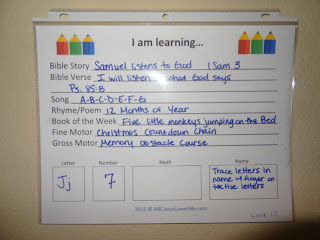 I am learning...
Bible Story Samuel listens to God 1 Sam 3
Bible Verse I will listen what God says
Ps. 85:8
Song A-B-C-D-E-F-G
Rhyme/Poem 12 Months of Year
Book of the Week Five little monkeys jumping on the Bed
Fine Motor Christmas Countdown Chain
Gross Motor Memory Obstacle Course
Letter Number Math Name
Jj 7 Trace letters in
name w/ finger on
tactile letters
2011 © ABCJesusLovesMe.com